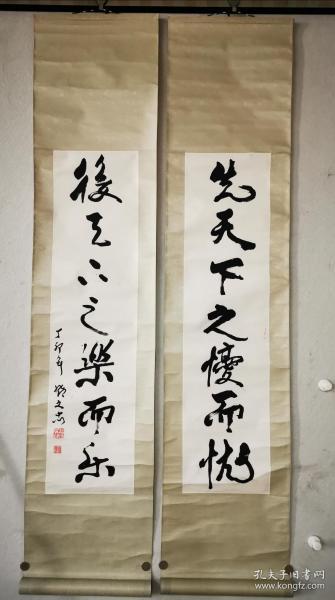 先天下之憂而憂
後天下之樂而樂
丁卯年
孔夫子旧书网
www.kongfz.com